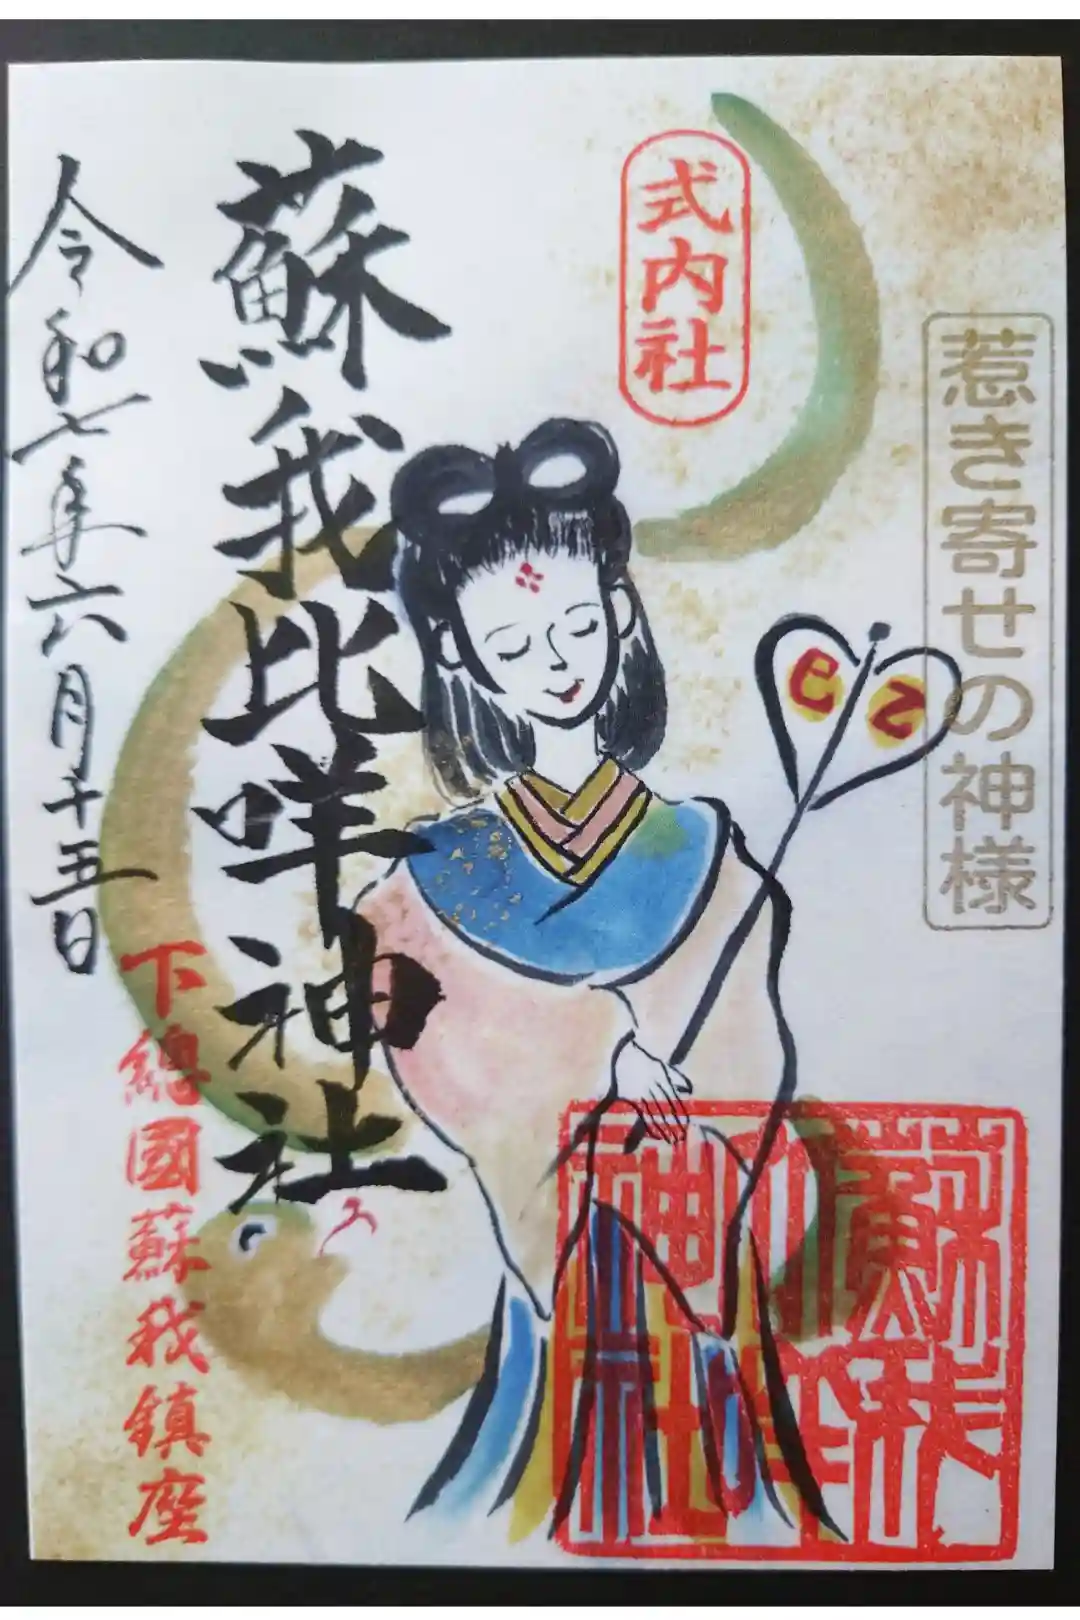 惹き寄せの神様
式内社
蘇我比咩神社
下總國蘇我鎮座
令和七年六月十五日